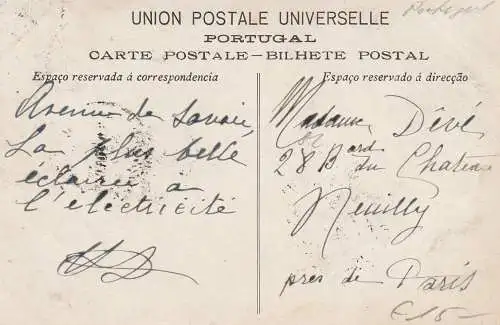 Portugal
UNION POSTALE UNIVERSELLE
PORTUGAL
CARTE POSTALE–BILHETE POSTAL
Espaço reservada á correspondencia
Espaço reservado á direcção
Avenue de Savoie
La plus belle
éclairée à
l'électricité
Madame Dévé
28 Bard du Chateau
Neuilly
près de Paris
€15-